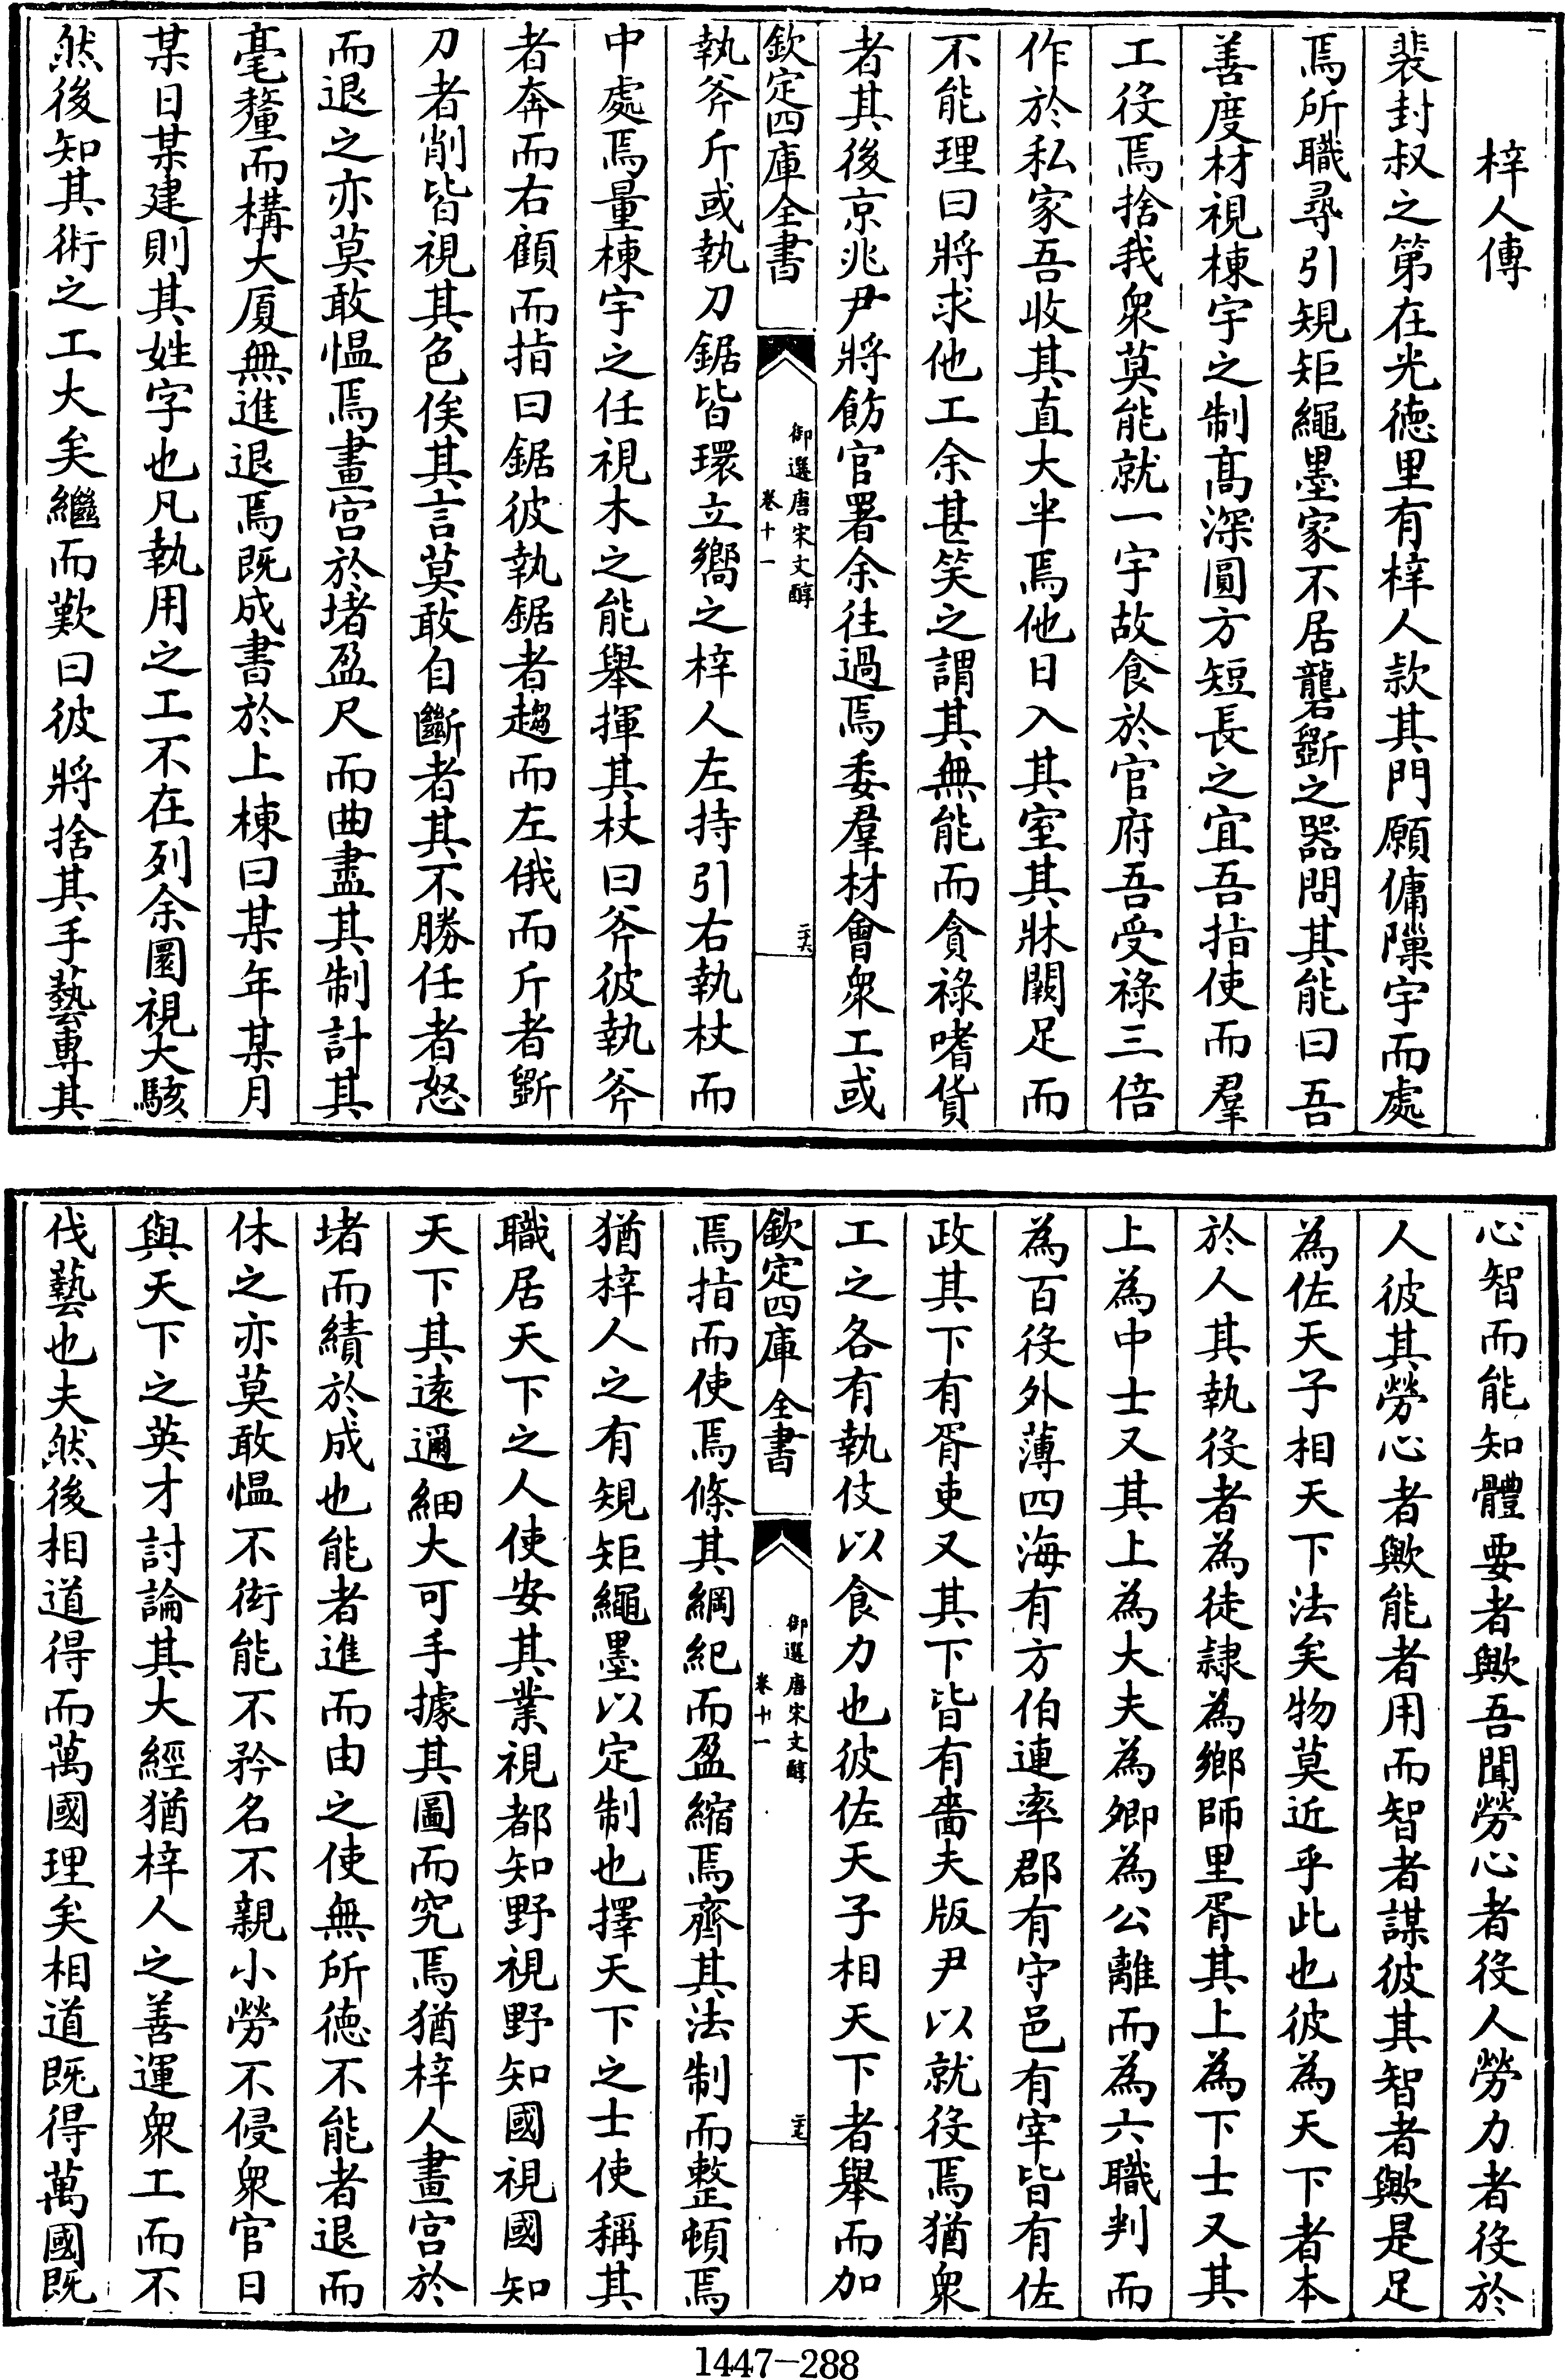 梓人傳
裴封叔之第在光德里有梓人款其門願傭隟宇而處
焉所職尋引規矩繩墨家不居礱斲之器問其能曰吾
善度材視棟宇之制髙深圓方短長之宜吾指使而羣
工役焉捨我衆莫能就一宇故食於官府吾受祿三倍
作於私家吾收其直大半焉他日入其室其牀闕足而
不能理曰將求他工余甚笑之謂其無能而貪祿嗜貨
者其後京兆尹將飭官署余往過焉委羣材會衆工或
欽定四庫全書
御選唐宋文醇
卷十一
執斧斤或執刀鋸皆環立嚮之梓人左持引右執杖而
中處焉量棟宇之任視木之能舉揮其杖曰斧彼執斧
者奔而右顧而指曰鋸彼執鋸者趨而左俄而斤者斲
刀者削皆視其色俟其言莫敢自斷者其不勝任者怒
而退之亦莫敢愠焉畫宫於堵盈尺而曲盡其制計其
毫釐而構大厦無進退焉既成書於上棟曰某年某月
某日某建則其姓字也凡執用之工不在列余圜視大駭
然後知其術之工大矣繼而歎曰彼將捨其手藝專其
心智而能知體要者歟吾聞勞心者役人勞力者役於
人彼其勞心者歟能者用而智者謀彼其智者歟是足
為佐天子相天下法矣物莫近乎此也彼為天下者本
於人其執役者為徒隷為鄉師里胥其上為下士又其
上為中士又其上為大夫為卿為公離而為六職判而
為百役外薄四海有方伯連率郡有守邑有宰皆有佐
政其下有胥吏又其下皆有嗇夫版尹以就役焉猶衆
工之各有執伎以食力也彼佐天子相天下者舉而加
欽定四庫全書
御選唐宋文醇
卷十一
焉指而使焉條其綱紀而盈縮焉齊其法制而整頓焉
猶梓人之有規矩繩墨以定制也擇天下之士使稱其
職居天下之人使安其業視都知野視野知國視國知
天下其遠邇細大可手據其圖而究焉猶梓人畫宫於
堵而績於成也能者進而由之使無所德不能者退而
休之亦莫敢愠不衒能不矜名不親小勞不侵衆官日
與天下之英才討論其大經猶梓人之善運衆工而不
伐藝也夫然後相道得而萬國理矣相道既得萬國既
1447-288